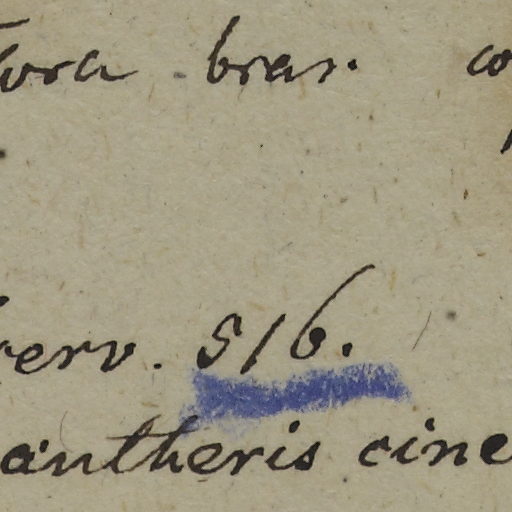 vora bras. co
erv. 516.
antheris cine